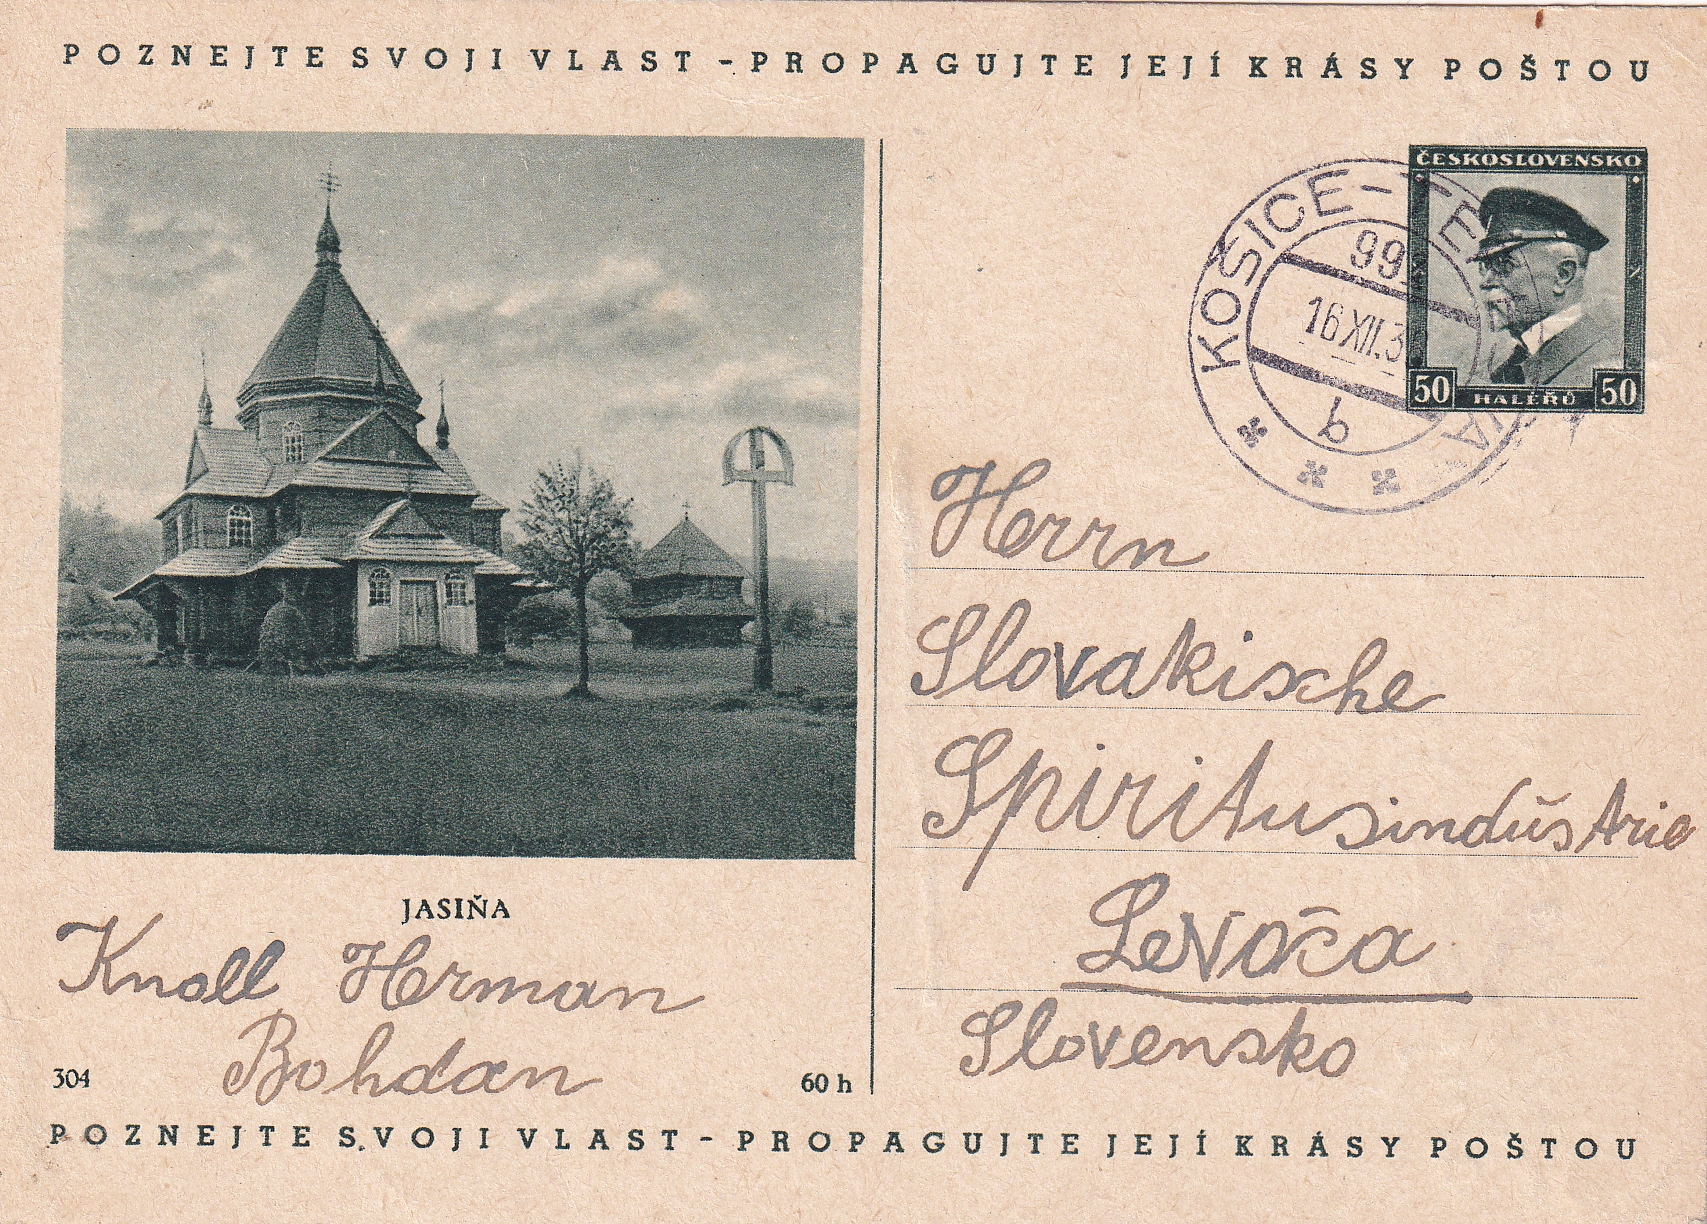 POZNEJTE SVOJI VLAST - PROPAGUJTE JEJÍ KRÁSY POŠTOU
ČESKOSLOVENSKO
50 HALÉŘŮ 50
KOŠICE-
99
16.XII.3
Herrn
Slovakische
Spiritusindŭstrie
Levoča
Slovensko
JASIŇA
Knoll Herman
Bohdan
304
60 h
POZNEJTE SVOJI VLAST - PROPAGUJTE JEJÍ KRÁSY POŠTOU